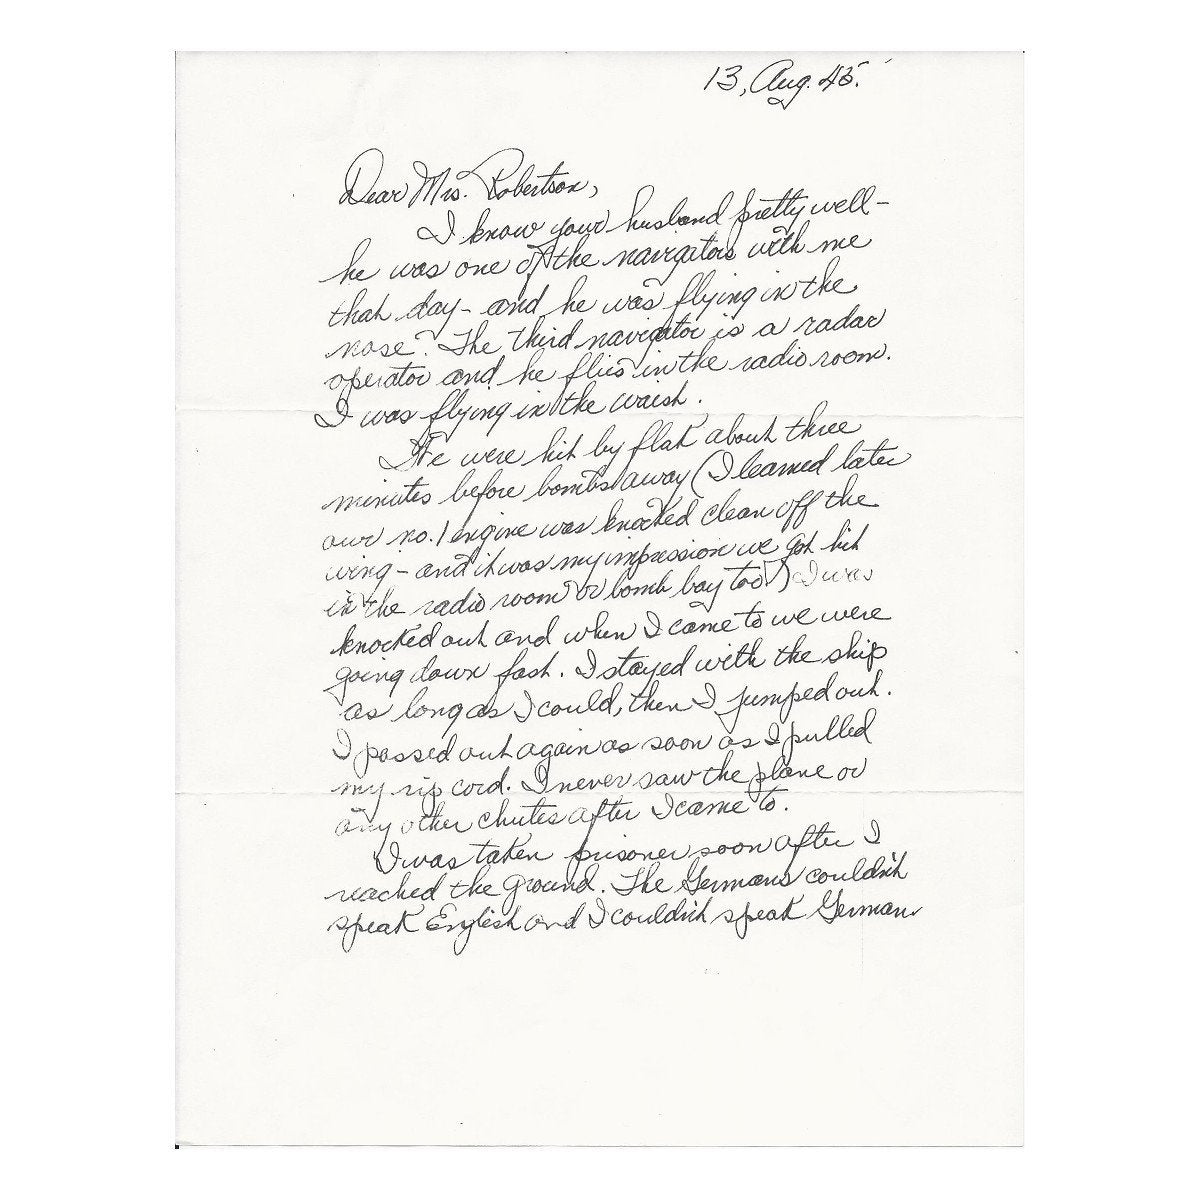 13, Aug. 45.
Dear Mrs. Robertson,
I know your husband pretty well -
he was one of the navigators with me
that day - and he was flying in the
nose. The third navigator is a radar
operator and he flies in the radio room.
I was flying in the waist.
We were hit by flak about three
minutes before bombs away (I learned later
our no. 1 engine was knocked clean off the
wing - and it was my impression we got hit
in the radio room or bomb bay too) I was
knocked out and when I came to we were
going down fast. I stayed with the ship
as long as I could, then I jumped out.
I passed out again as soon as I pulled
my rip cord. I never saw the plane or
any other chutes after I came to.
I was taken prisoner soon after I
reached the ground. The Germans couldn't
speak English and I couldn't speak German